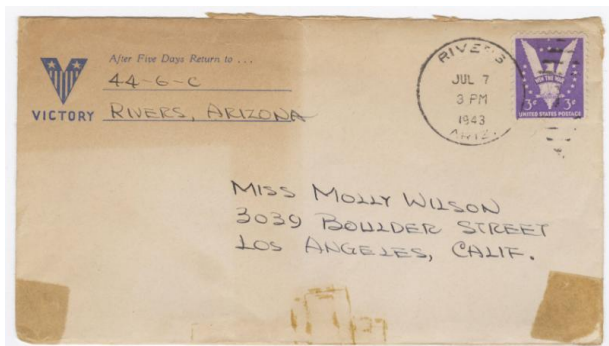 After Five Days Return to . . .
44-6-C
VICTORY
RIVERS, ARIZONA
RIVERS
JUL 7
3 PM
1943
ARIZ.
WIN THE WAR
3¢ 3¢
UNITED STATES POSTAGE
MISS MOLLY WILSON
3039 BOULDER STREET
LOS ANGELES, CALIF.